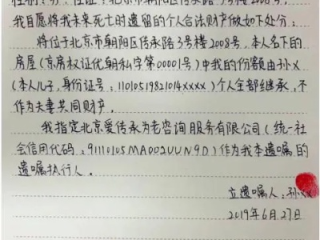 我自愿将我未来死亡时遗留的个人合法财产做如下处分:
将位于北京市朝阳区传承路3号楼2008号,本人名下的
房屋(京房权证优朝私字第00001号)中我的份额由孙X
(本人儿子,身份证号:11010519821014XXXX)个人全部继承,不
作为夫妻共同财产。
我指定北京爱传承为老咨询服务有限公司(统一社
会信用代码:91110105MA002UUN9D)作为我本遗嘱的
遗嘱执行人。
立遗嘱人:孙
2019年6月27日